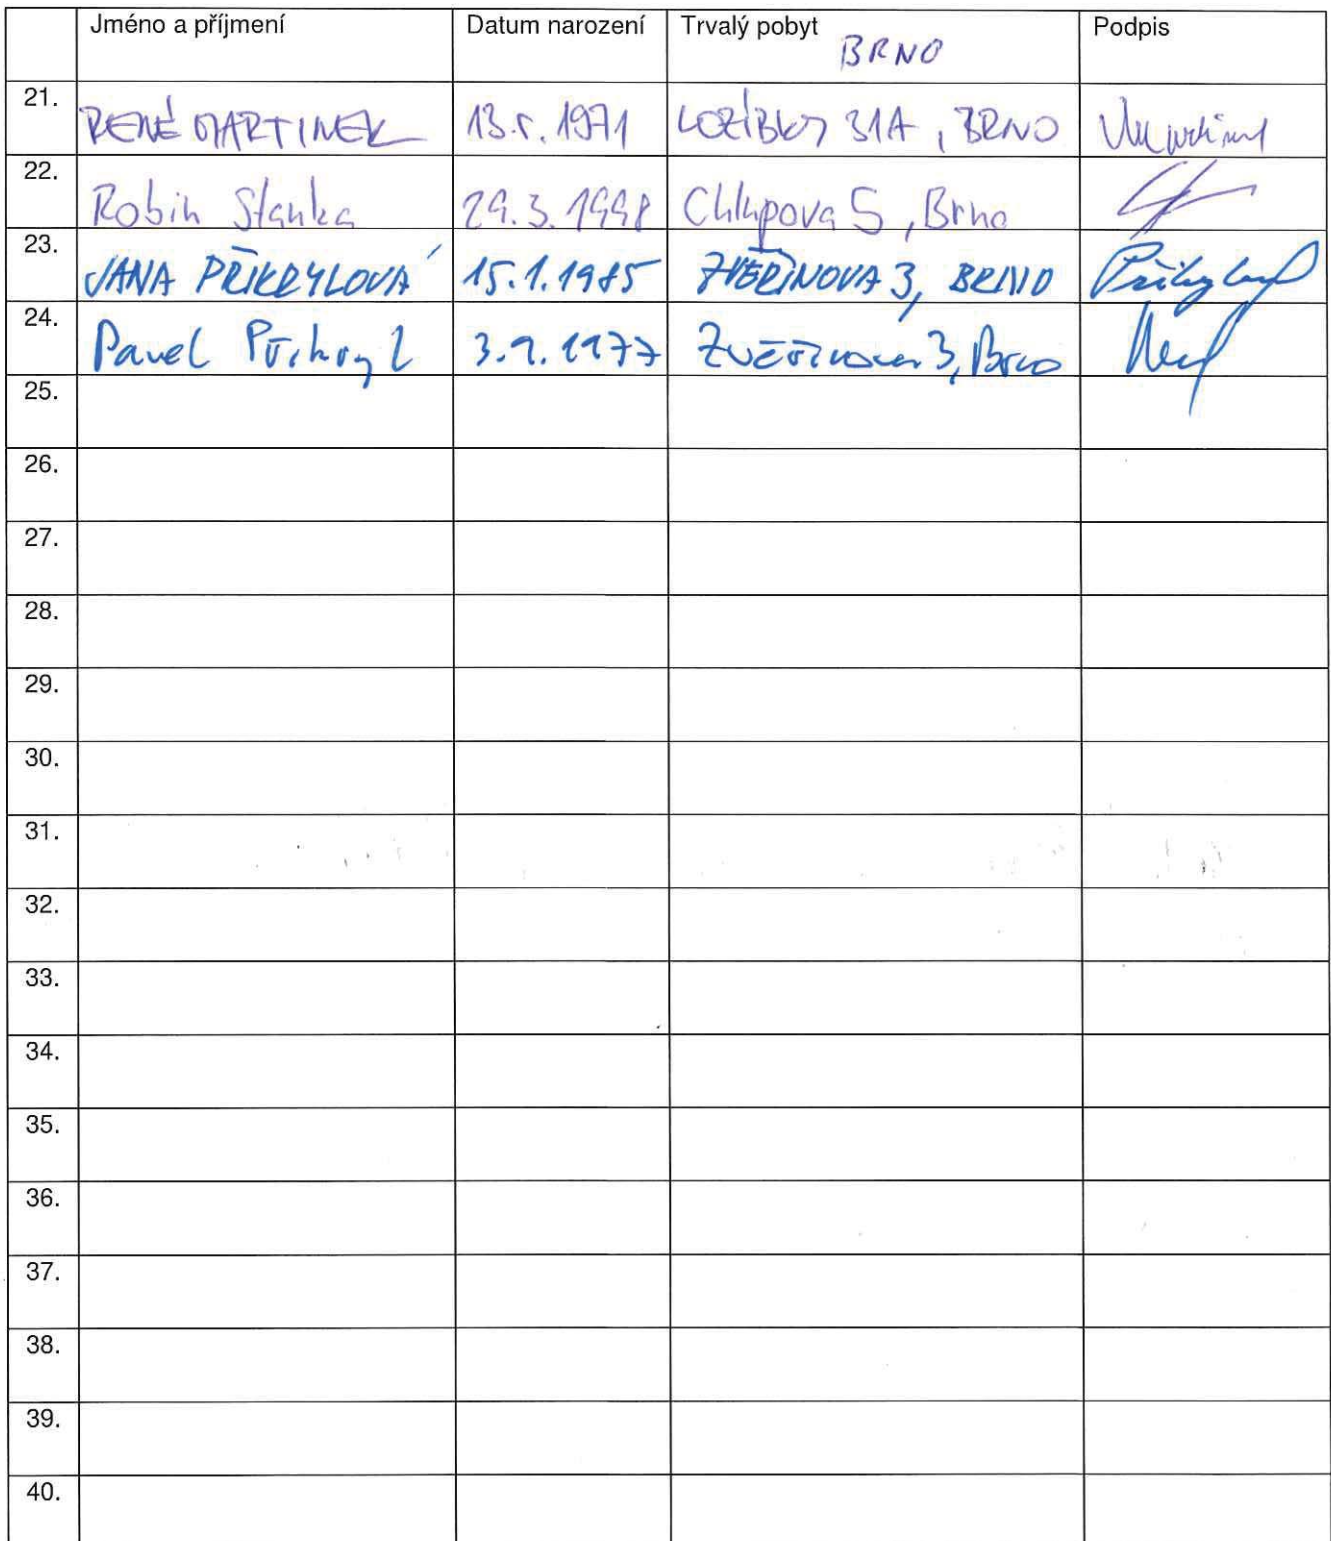 Jméno a příjmení Datum narození Trvalý pobyt BRNO Podpis
21. RENÉ MARTINEK 13.5.1971 31A, BRNO
22. Robin Stanka 29.3.1998 Chlupova 5, Brno
23. JANA PŘIKRYLOVÁ 15.1.1985 ZVĚŘINOVA 3, BRNO
24. Pavel Přikryl 3.9.1977 Zvěřinova 3, Brno
25.
26.
27.
28.
29.
30.
31.
32.
33.
34.
35.
36.
37.
38.
39.
40.